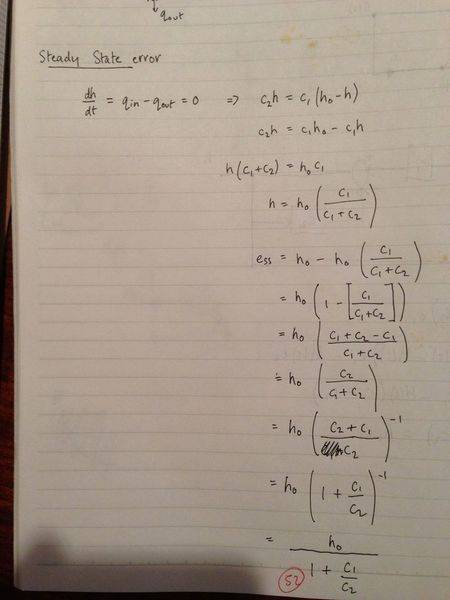 q_out
Steady State error
dh/dt = q_in - q_out = 0 => c₂h = c₁(h₀-h)
c₂h = c₁h₀ - c₁h
h(c₁+c₂) = h₀c₁
h = h₀(c₁/(c₁+c₂))
ess = h₀ - h₀(c₁/(c₁+c₂))
= h₀(1 - [c₁/(c₁+c₂)])
= h₀((c₁+c₂-c₁)/(c₁+c₂))
= h₀(c₂/(c₁+c₂))
= h₀((c₂+c₁)/c₂)⁻¹
= h₀(1 + c₁/c₂)⁻¹
= h₀/(1 + c₁/c₂)
52